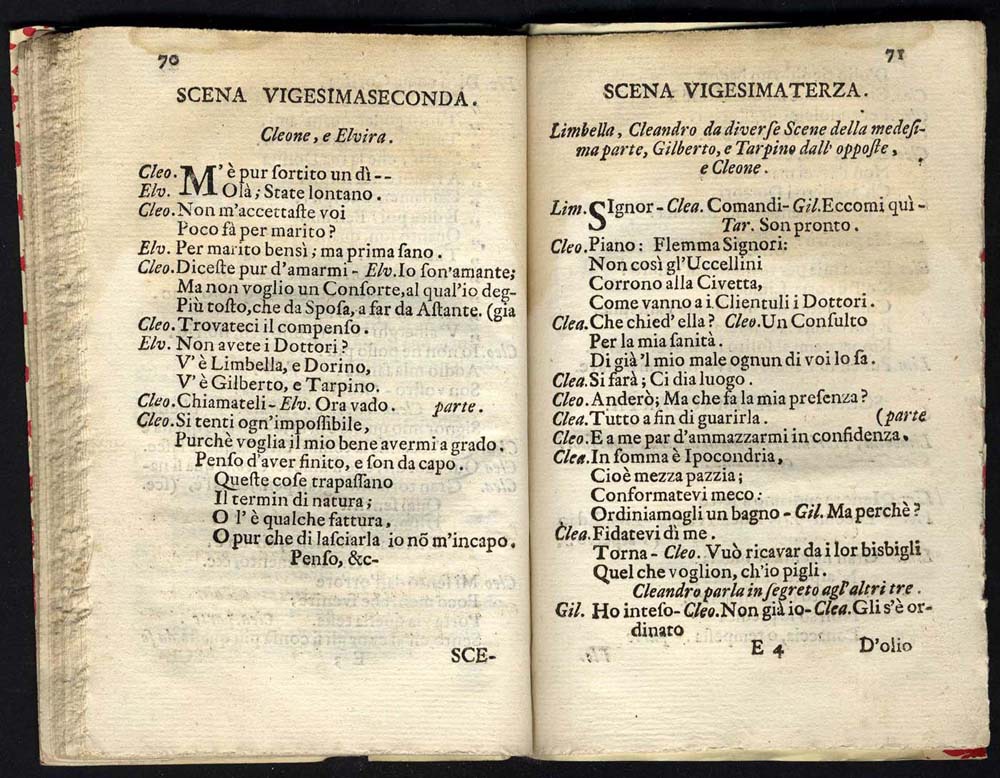 70
SCENA VIGESIMASECONDA.
Cleone, e Elvira.
Cleo. M'è pur ſortito un dì--
Elv. Olà; State lontano.
Cleo. Non m'accettaſte voi
Poco fà per marito?
Elv. Per marito bensì; ma prima ſano.
Cleo. Diceſte pur d'amarmi - Elv. Io ſon'amante;
Ma non voglio un Conſorte, al qual'io deg-
Più toſto, che da Spoſa, a far da Aſtante. (gia
Cleo. Trovateci il compenſo.
Elv. Non avete i Dottori?
V'è Limbella, e Dorino,
V'è Gilberto, e Tarpino.
Cleo. Chiamateli - Elv. Ora vado. parte.
Cleo. Si tenti ogn'impoſſibile,
Purchè voglia il mio bene avermi a grado.
Penſo d'aver finito, e ſon da capo.
Queſte coſe trapaſſano
Il termin di natura;
O l'è qualche fattura,
O pur che di laſciarla io nõ m'incapo.
Penſo, &c-
SCE-
71
SCENA VIGESIMATERZA.
Limbella, Cleandro da diverſe Scene della medeſi-
ma parte, Gilberto, e Tarpino dall' oppoſte,
e Cleone.
Lim. SIgnor - Clea. Comandi - Gil. Eccomi quì -
Tar. Son pronto.
Cleo. Piano: Flemma Signori:
Non così gl'Uccellini
Corrono alla Civetta,
Come vanno a i Clientuli i Dottori.
Clea. Che chied' ella? Cleo. Un Conſulto
Per la mia ſanità.
Di già 'l mio male ognun di voi lo ſa.
Clea. Si farà; Ci dia luogo.
Cleo. Anderò; Ma che fa la mia preſenza?
Clea. Tutto a fin di guarirla. (parte
Cleo. E a me par d'ammazzarmi in confidenza.
Clea. In ſomma è Ipocondria,
Cioè mezza pazzia;
Conformatevi meco:
Ordiniamogli un bagno - Gil. Ma perchè?
Clea. Fidatevi dì me.
Torna - Cleo. Vuò ricavar da i lor bisbigli
Quel che voglion, ch'io pigli.
Cleandro parla in ſegreto agl'altri tre.
Gil. Ho inteſo - Cleo. Non già io - Clea. Gli s'è or-
dinato
E 4
D'olio